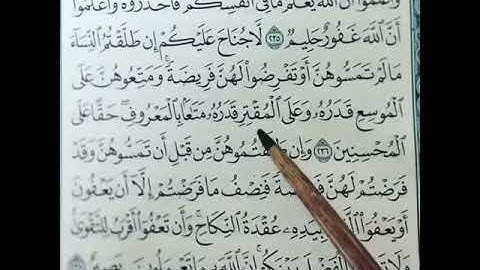 وَاعْلَمُوا أَنَّ اللَّهَ يَعْلَمُ مَا فِي أَنفُسِكُمْ فَاحْذَرُوهُ وَاعْلَمُوا
أَنَّ اللَّهَ غَفُورٌ حَلِيمٌ ۝٢٣٥ لَّا جُنَاحَ عَلَيْكُمْ إِن طَلَّقْتُمُ النِّسَاءَ
مَا لَمْ تَمَسُّوهُنَّ أَوْ تَفْرِضُوا لَهُنَّ فَرِيضَةً ۚ وَمَتِّعُوهُنَّ عَلَى
الْمُوسِعِ قَدَرُهُ وَعَلَى الْمُقْتِرِ قَدَرُهُ مَتَاعًا بِالْمَعْرُوفِ ۖ حَقًّا عَلَى
الْمُحْسِنِينَ ۝٢٣٦ وَإِن طَلَّقْتُمُوهُنَّ مِن قَبْلِ أَن تَمَسُّوهُنَّ وَقَدْ
فَرَضْتُمْ لَهُنَّ فَرِيضَةً فَنِصْفُ مَا فَرَضْتُمْ إِلَّا أَن يَعْفُونَ
أَوْ يَعْفُوَا الَّذِي بِيَدِهِ عُقْدَةُ النِّكَاحِ ۚ وَأَن تَعْفُوا أَقْرَبُ لِلتَّقْوَىٰ